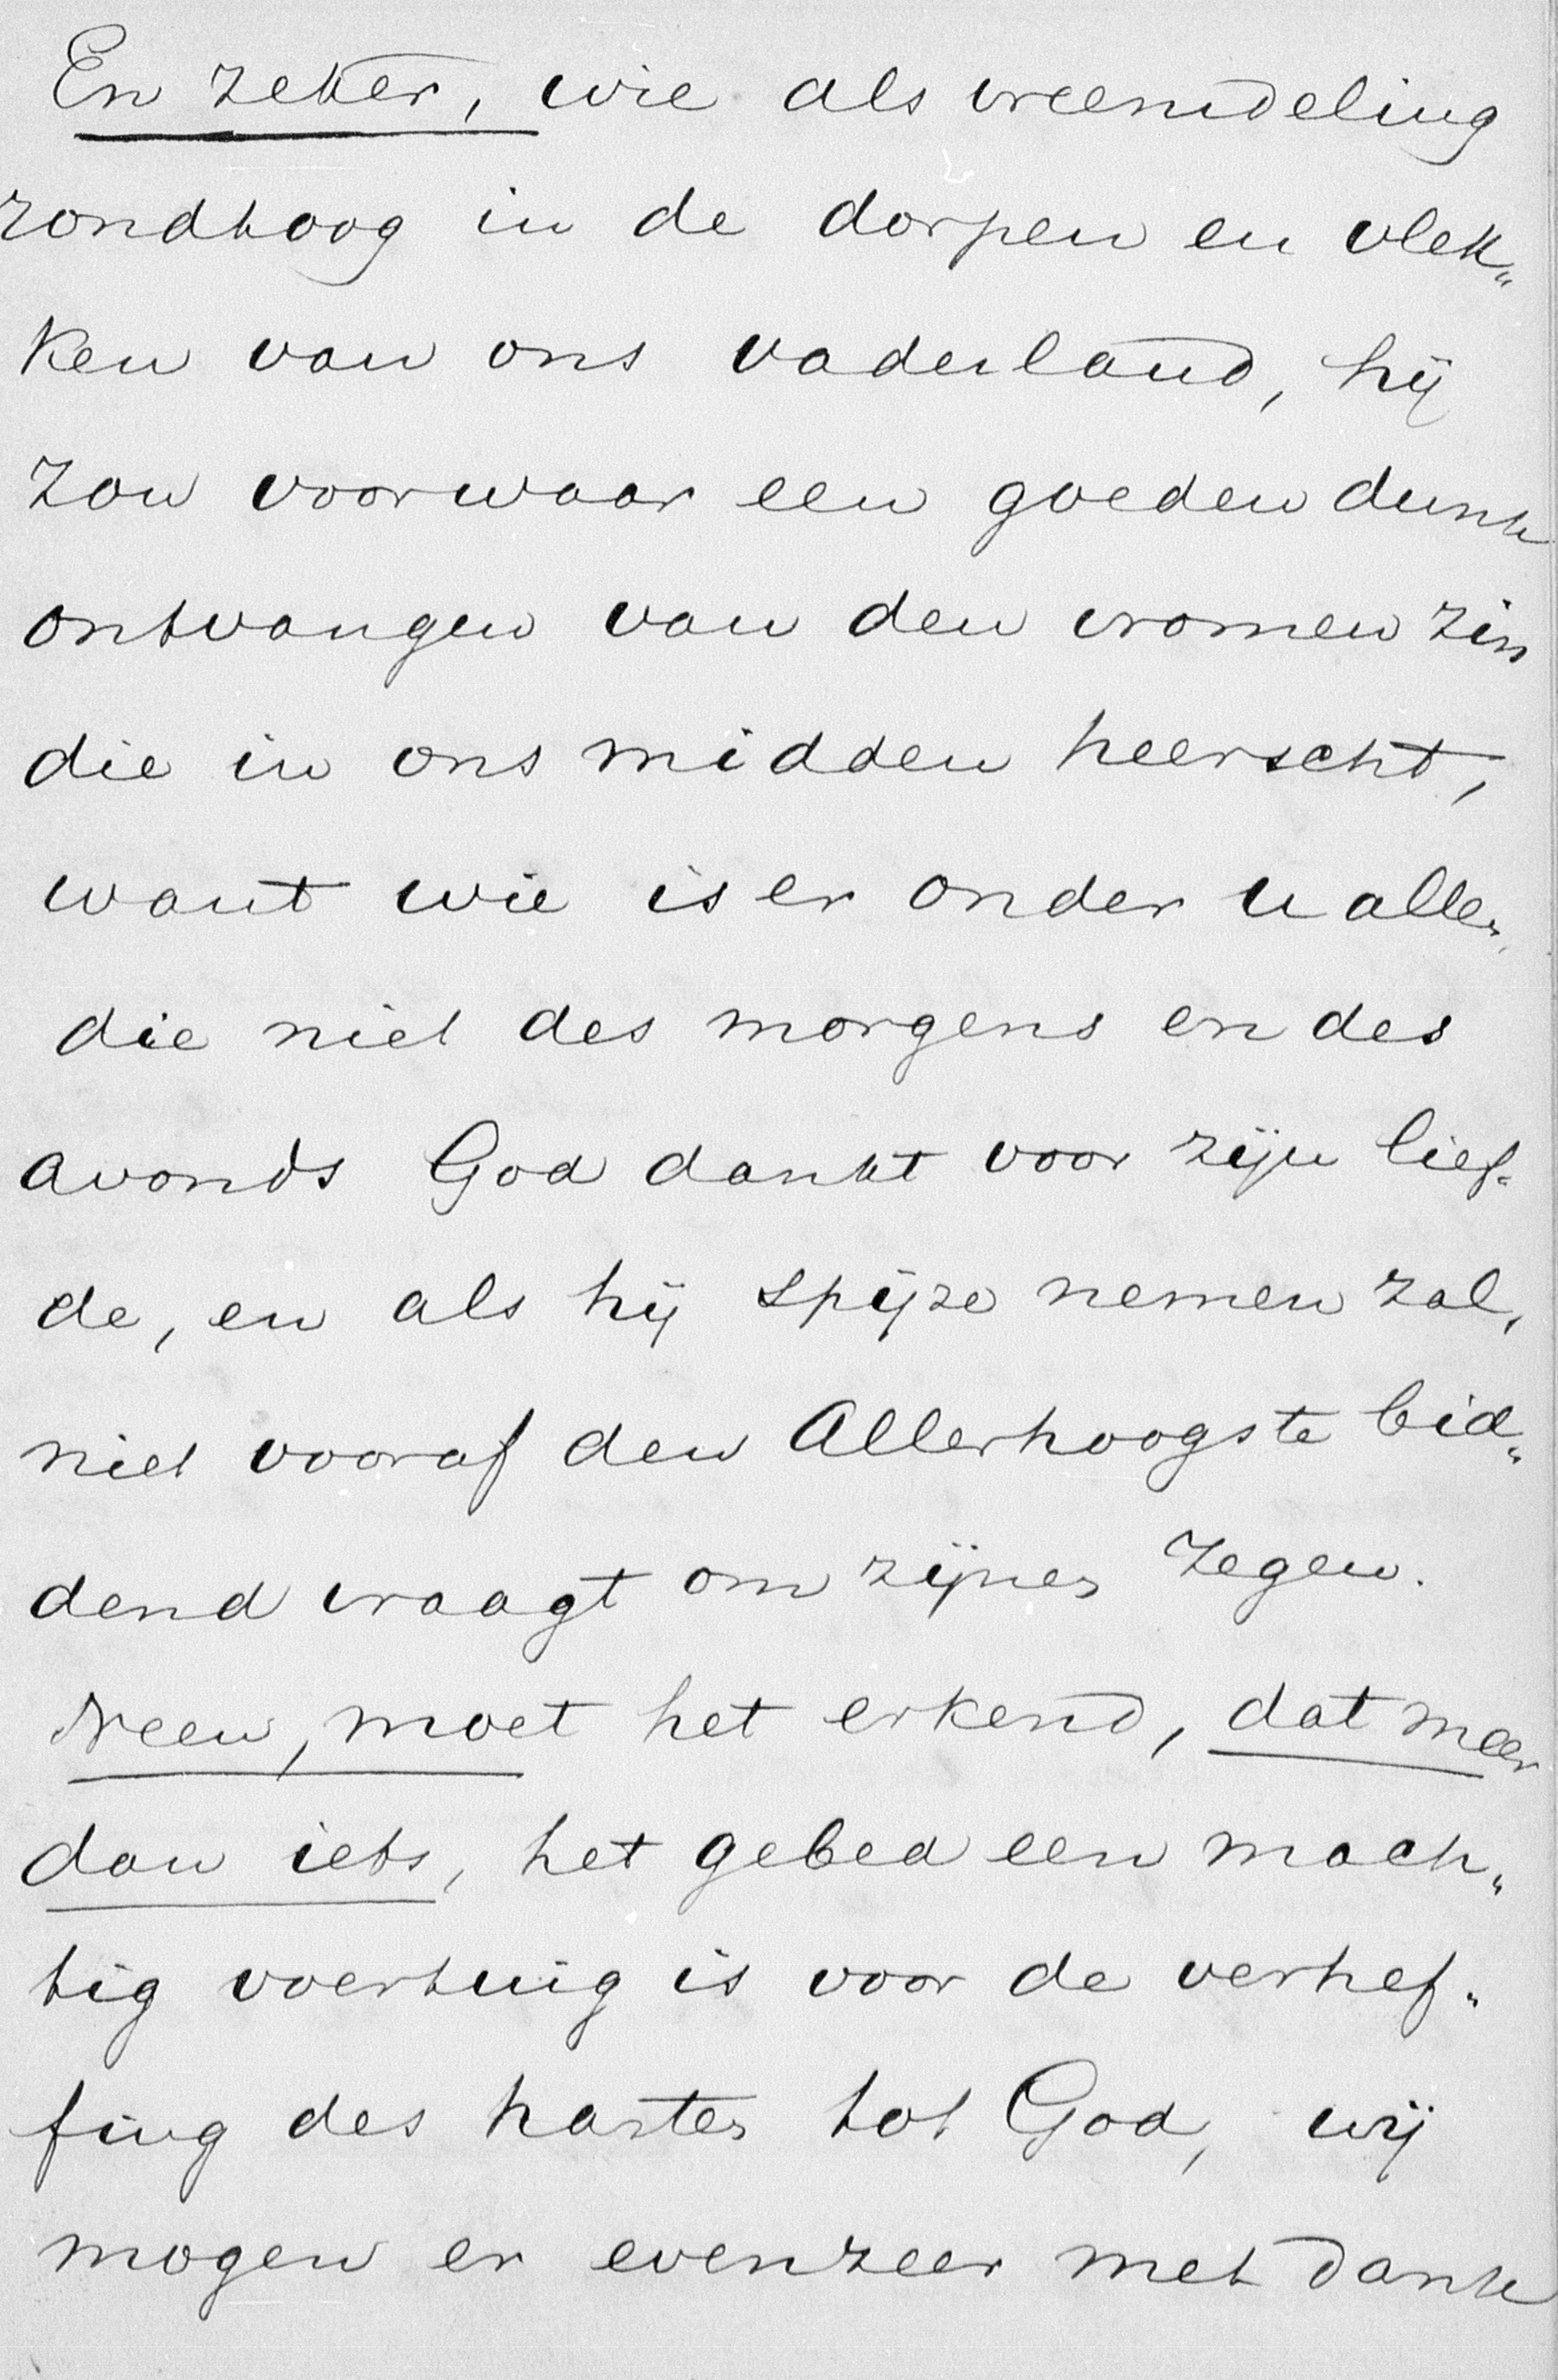 En zeker, wie als vreemdeling
rondtoog in de dorpen en vlek„
ken van ons vaderland, hij
zou voorwaar een goeden dunk
ontvangen van den vromen zin
die in ons midden heerscht,
want wie is er onder u allen
die niet des morgens en des
avonds God dankt voor zijn lief„
de, en als hij spijze nemen zal,
niet vooraf den Allerhoogste bid„
dend vraagt om zijnen zegen.
Neen, moet het erkend, dat meer
dan iets, het gebed een mach„
tig voertuig is voor de verhef„
fing des harten tot God, wij
mogen er evenzeer met dank